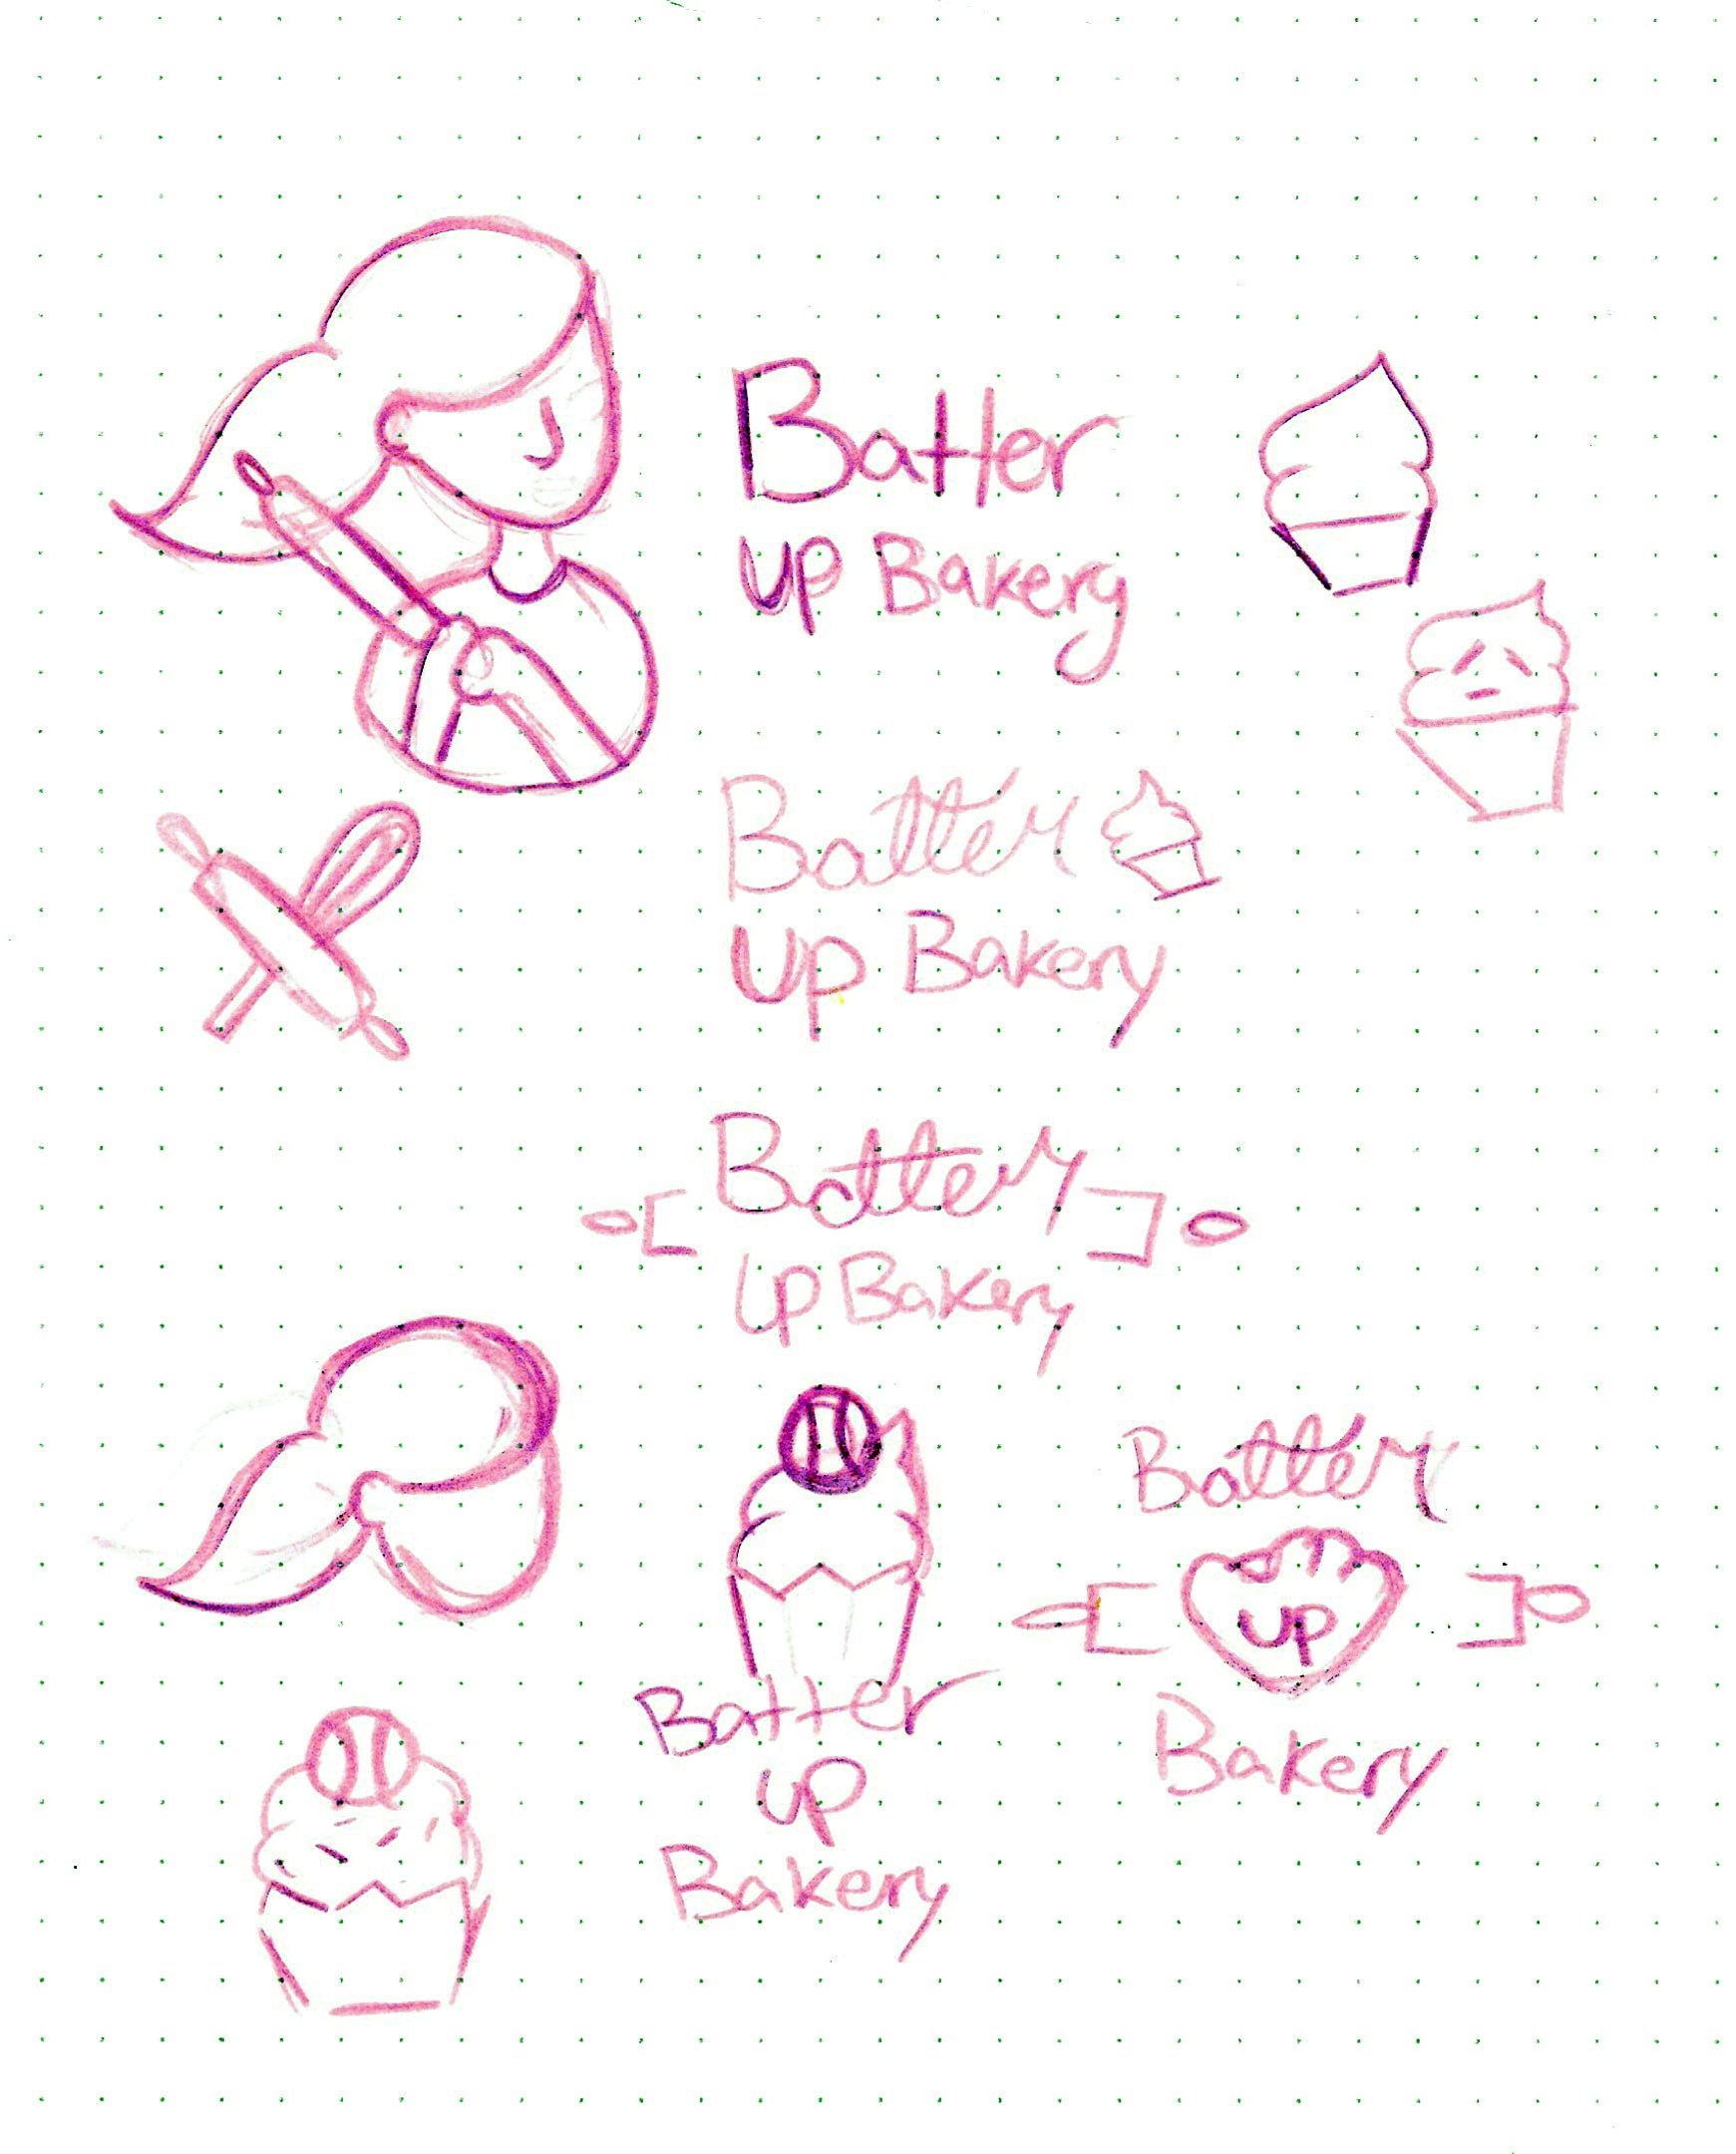 Batter
up Bakery
Batter
Up Bakery
Batter
Up Bakery
Batter
up
Bakery
Batter
up
Bakery